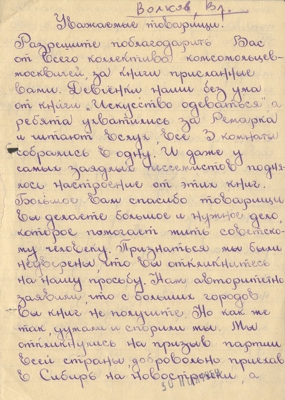 Волков, Вр.
Уважаемые товарищи.
Разрешите поблагодарить Вас
от всего коллектива комсомольцев-
москвичей за книги присланные
Вами. Девченки наши без ума
от книги „Искусство одеваться" а
ребята ухватились за Ремарка
и читают вслух все 3 комнаты
собрались в одну. И даже у
самых заядлых пессемистов подня-
лось настроение от этих книг.
Большое Вам спасибо товарищи
Вы делаете большое и нужное дело,
которое помогает жить советско-
му человеку. Признаться мы были
неуверены, что Вы откликнитесь
на нашу просьбу. Нам авторитетно
заявили, что с больших городов
Вы книг не получите. Но как же
так, думали и спорили мы. Мы
откликнулись на призыв партии
всей страны, добровольно приехав
в Сибирь на новостройки, а